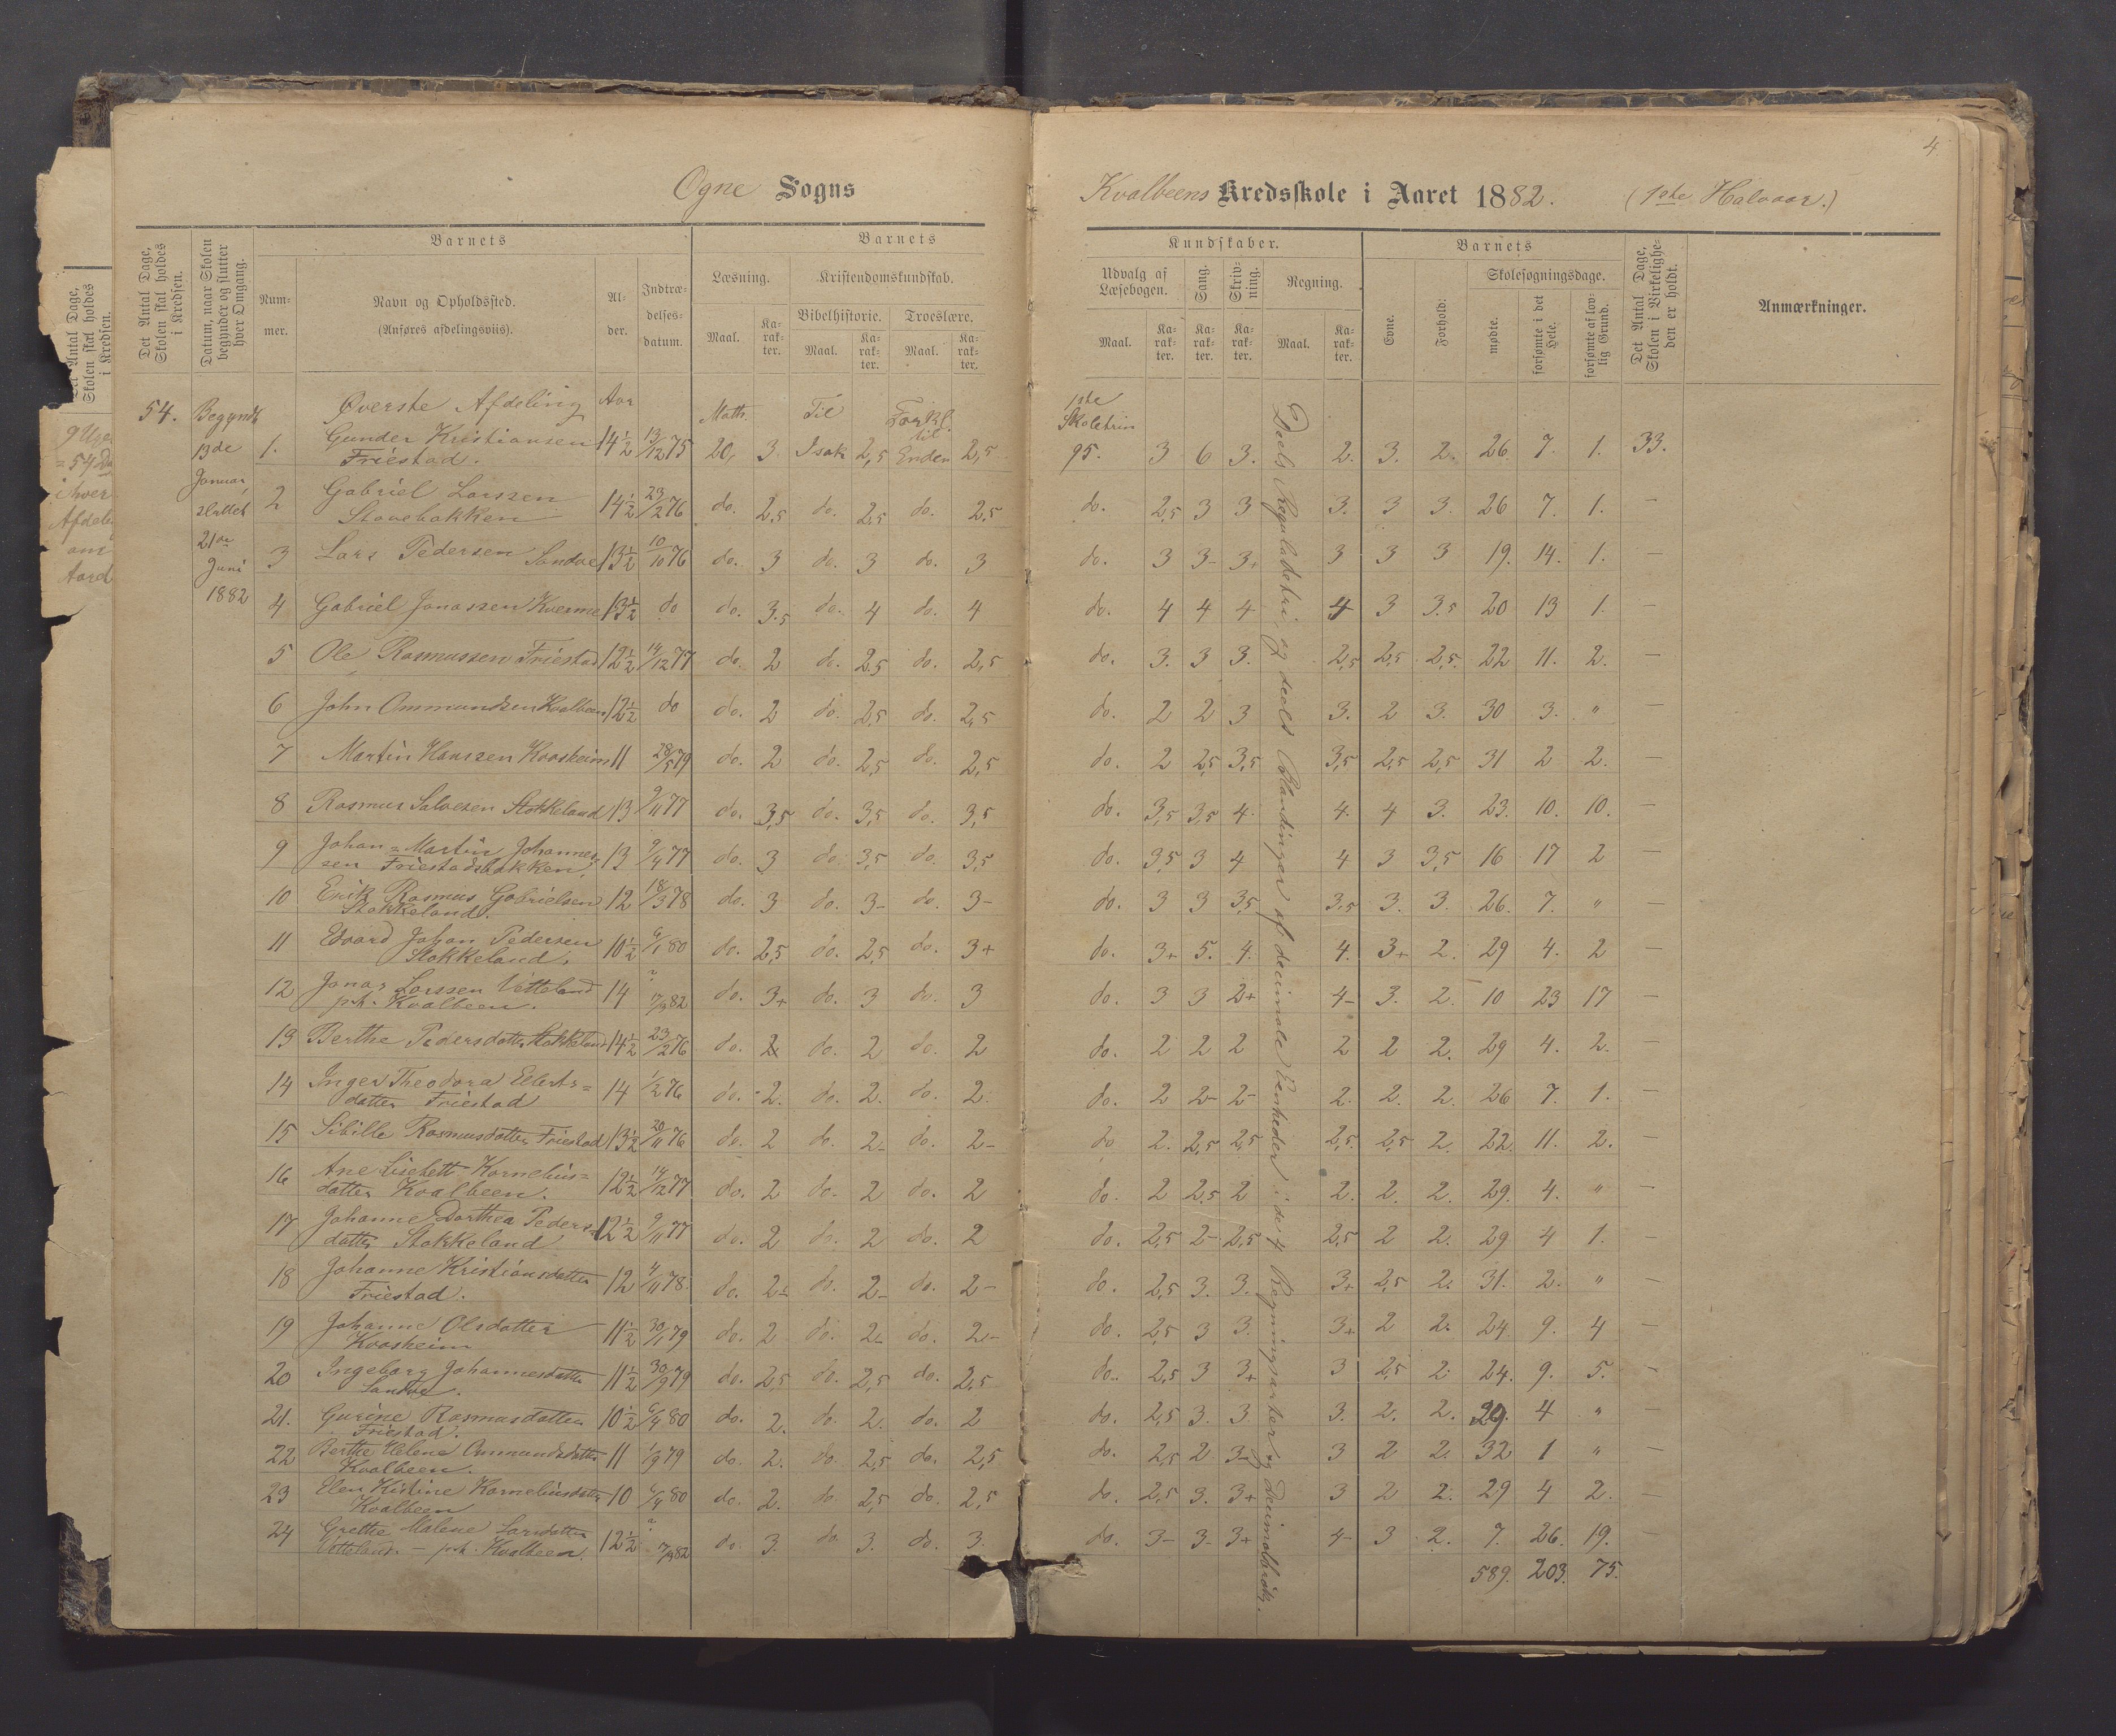 4
Ogne Sogns Kvalbeens Kredsskole i Aaret 1882. (1ste Halvaar.)
Det Antal Dage, Skolen skal holdes i Kredsen.
Datum, naar Skolen begynder og slutter hver Omgang.
Barnets
Num-
mer.
Navn og Opholdssted.
(Anføres afdelingsviis).
Al-
der.
Indtræ-
delses-
datum.
Barnets
Læsning.
Kristendomskundskab.
Bibelhistorie. Troeslære.
Maal. Ka-rak-ter. Maal. Ka-rak-ter. Maal. Ka-rak-ter.
Kundskaber.
Udvalg af Læsebogen. Sang. Skriv-ning. Regning.
Maal. Ka-rak-ter. Ka-rak-ter. Ka-rak-ter. Maal. Ka-rak-ter.
Barnets
Evne. Forhold:
Skolesøgningsdage.
mødte. forsømte i det Hele. forsømte af lov-lig Grund.
Det Antal Dage, Skolen i Virkelighe-den er holdt.
Anmærkninger.
54. Begyndt
13de
Januar,
sluttet
21de
Juni
1882
Øverste Afdeling Aar
Math. Til Forkl. til 1ste Skoletrin
1. Gunder Kristiansen Friestad. 14½ 13/12 75 20, 3. Isak 2,5 Enden 2,5 95. 3 6 3. 2. 3. 2. 26. 7. 1. 33.
2 Gabriel Larssen Stovebakken 14½ 23/2 76 do. 2,5 do. 2,5 do. 2,5 do. 2,5 3 3 3. 3 3. 26 7. 1. —
3 Lars Pedersen Sandve 13½ 10/10 76 do. 3 do. 3 do. 3 do. 3 3- 3+ 3 3 3 19. 14. 1. —
4 Gabriel Jonassen Kverme 13½ do do. 3.5 do. 4 do. 4 do. 4 4 4 4 3 3.5 20 13 1. —
5 Ole Rasmussen Friestad 12½ 14/12 77 do. 2 do. 2,5 do. 2,5 do. 3. 3 3. 2,5 2,5 2,5. 22 11. 2. —
6 John Ommundsen Kvalbeen 12½ do do. 2 do. 2,5 do. 2,5 do. 2 2 3 3. 2 3. 30 3. " —
7 Martin Hanssen Kvasheim 11 28/5 79 do. 2 do. 2,5 do. 2,5 do. 2 2,5 3,5 3,5 2,5 2,5 31 2 2. —
8 Rasmus Salvesen Stokkeland 13 9/11 77 do. 3,5 do. 3,5 do. 3,5 do. 3,5 3,5 4. 4. 4 3. 23. 10. 10. —
9 Johan=Martin Johannes-
sen Friestadsbakken. 13 9/4 77 do. 3 do. 3,5 do. 3,5 do. 3,5 3 4 4 3 3,5 16 17 2 —
10 Erik Rasmus Gabrielsen
Stokkeland. 12 18/3 78 do. 3 do. 3- do. 3- do. 3 3 3,5 3,5 3. 3. 26. 7. " —
11 Edvard Johan Pedersen
Stokkeland. 10½ 6/1 80 do. 2,5 do. 2,5 do. 3+ do. 3+ 5. 4. 4. 3+ 2. 29 4. 2 —
12 Jonas Larssen Vetteland
p.t. Kvalbeen. 14 82 do. 3+ do. 3 do. 3 do. 3 3 2+ 4- 3. 2. 10 23 17 —
13 Berthe Pedersdatter Stokkeland 14½ 23/2 76 do. 2 do. 2 do. 2 do. 2 2 2 2 2 2. 29 4. 2. —
14 Inger Theodora Eilerts=
datter Friestad 14 1/2 76 do. 2. do. 2. do. 2. do. 2 2- 2- 2. 2. 2. 26 7. 1. —
15 Sibille Rasmusdatter Friestad 13½ 20/11 76 do. 2 do. 2- do. 2- do 2. 2,5 2,5 2,5. 2,5 2. 22. 11. 2. —
16 Ane Lisebett Kornelius=
datter Kvalbeen. 12½ 14/12 77 do. 2 do. 2 do. 2 do. 2 2,5 2 2. 2. 2. 29. 4. " —
17 Johanne Dorthea Peders-
datter Stokkeland 12½ 9/11 77 do. 2 do. 2 do. 2 do. 2,5 2- 2,5 2,5 2 2. 29 4 1. —
18 Johanne Kristiansdatter
Friestad. 12 4/11 78. do. 2- do. 2- do. 2- do. 2,5 3. 3. 3+ 2,5 2. 31. 2. " —
19 Johanne Olsdatter
Kvasheim 11½ 30/1 79 do. 2 do. 2- do. 2- do. 2,5 3 3. 3+ 2 2. 24. 9. 4 —
20 Ingeborg Johannesdatter
Sandve. 11½ 30/9 79 do. 2,5 do. 2,5 do. 2,5 do. 2,5 3 3+ 3 2,5 2. 24. 9. 5. —
21. Gurine Rasmusdatter
Friestad. 10½ 6/4 80 do. 2. do. 2. do. 2 do. 2,5 3. 3 3. 2. 2. 29. 4 " —
22 Berthe Helene Ommundsdatter
Kvalbeen. 11 1/9 79 do. 2. do. 2,5 do. 2,5 do. 2,5 2 3- 3 2 2. 32 1 " —
23 Elen Kistine Korneliusdatter
Kvalbeen 10 6/4 80 do. 2. do. 2,5 do. 2,5 do. 2,5 3. 3+ 3 2 2. 29 4 2. —
24 Grethe Malene Larsdatter
Vetteland — p.t. Kvalbeen. 12½ 82 do. 3. do. 3. do. 3. do. 3- 3- 3+ 4- 3 2. 7. 26. 19. —
589. 203. 75.
Deels Reguladetri og deels Blandinger af decimale Eenheder i de 4 Regningsarter og Decimalbrøk.
Det Antal Dage,
Skolen skal holdes
i Kredsen.